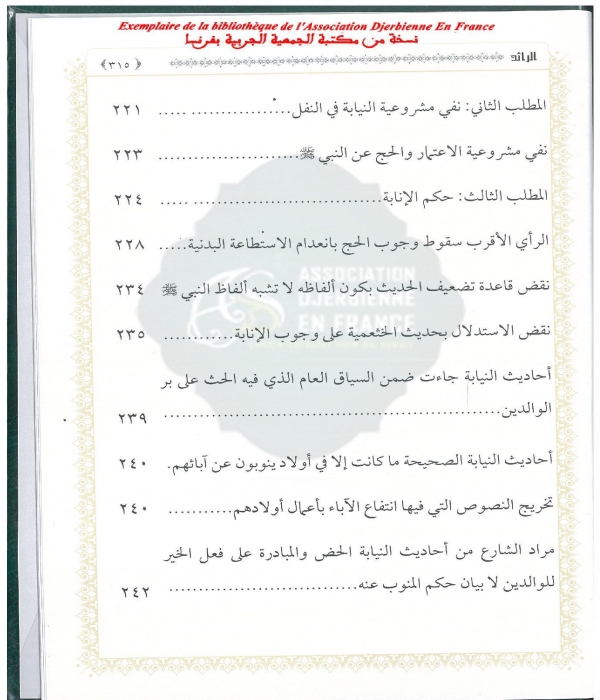 Exemplaire de la bibliothèque de l'Association Djerbienne En France
نسخة من مكتبة الجمعية الجربية بفرنسا
الرائد ﴿٣١٥﴾
المطلب الثاني: نفي مشروعية النيابة في النفل..................... ٢٢١
نفي مشروعية الاعتمار والحج عن النبي ﷺ........................ ٢٢٣
المطلب الثالث: حكم الإنابة.................................... ٢٢٤
الرأي الأقرب سقوط وجوب الحج بانعدام الاستطاعة البدنية..... ٢٢٨
نقض قاعدة تضعيف الحديث بكون ألفاظه لا تشبه ألفاظ النبي ﷺ ٢٣٤
نقض الاستدلال بحديث الخثعمية على وجوب الإنابة............. ٢٣٥
أحاديث النيابة جاءت ضمن السياق العام الذي فيه الحث على بر
الوالدين........................................................ ٢٣٩
أحاديث النيابة الصحيحة ما كانت إلا في أولاد ينوبون عن آبائهم. ٢٤٠
تخريج النصوص التي فيها انتفاع الآباء بأعمال أولادهم........... ٢٤٠
مراد الشارع من أحاديث النيابة الحض والمبادرة على فعل الخير
للوالدين لا بيان حكم المنوب عنه................................ ٢٤٢
ASSOCIATION
DJERBIENNE
EN FRANCE